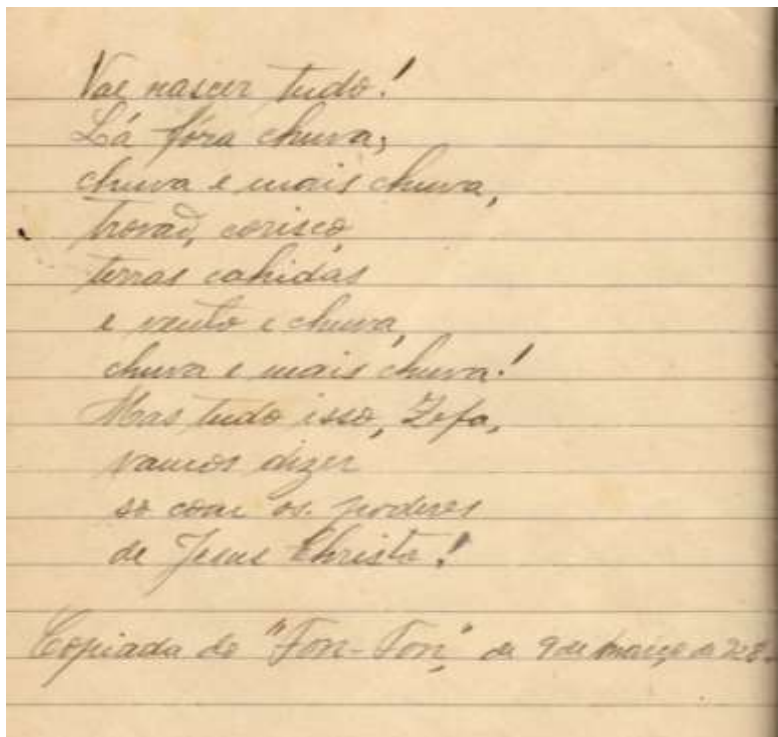 Vae nascer tudo!
Lá fóra chuva,
chuva e mais chuva,
trovão, corisco,
terras cahidas
e vento e chuva,
chuva e mais chuva!
Mas tudo isso, Zefa,
vamos dizer
só com os poderes
de Jesus Christo!
Copiada do "Fon-Fon", de 9 de março de